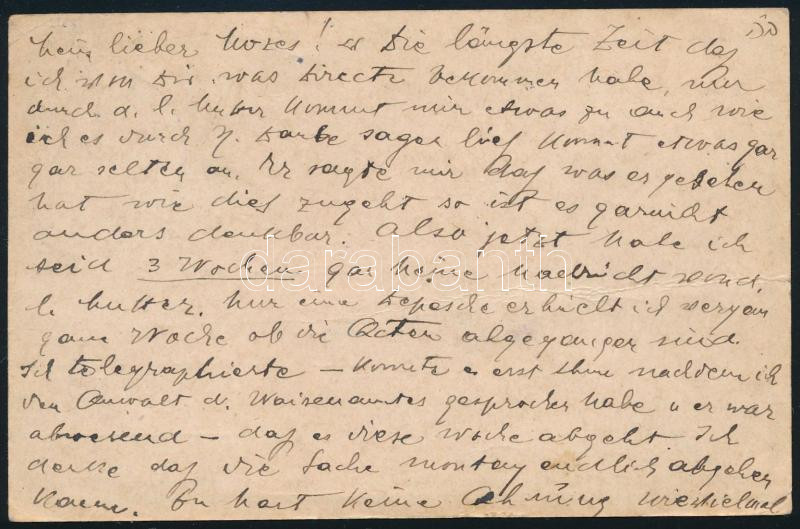 בה
Mein lieber Moses! Die längste Zeit daß
ich von Dir was Directe bekommen habe, nur
durch d. l. Mutter kommt mir etwas zu auch wie
ich es durch H. sagen ließ kommt etwas gar
gar selten an. Er sagte mir daß was er gesehen
hat wie dieß zugeht so ist es garnicht
anders denkbar. Also jetzt habe ich
seid 3 Wochen gar keine Nachricht von d.
l. Mutter. Nur eine Depesche erhielt ich vergan
gene Woche ob die Acten abgegangen sind.
Ich telegraphierte – konnte es erst thun nachdem ich
den Anwalt d. Waisenamtes gesprochen habe u er war
abwesend – daß es diese Woche abgeht. Ich
denke daß die Sache montag endlich abgehen
kann. Du hast keine Ahnung wievielmal
darabanth